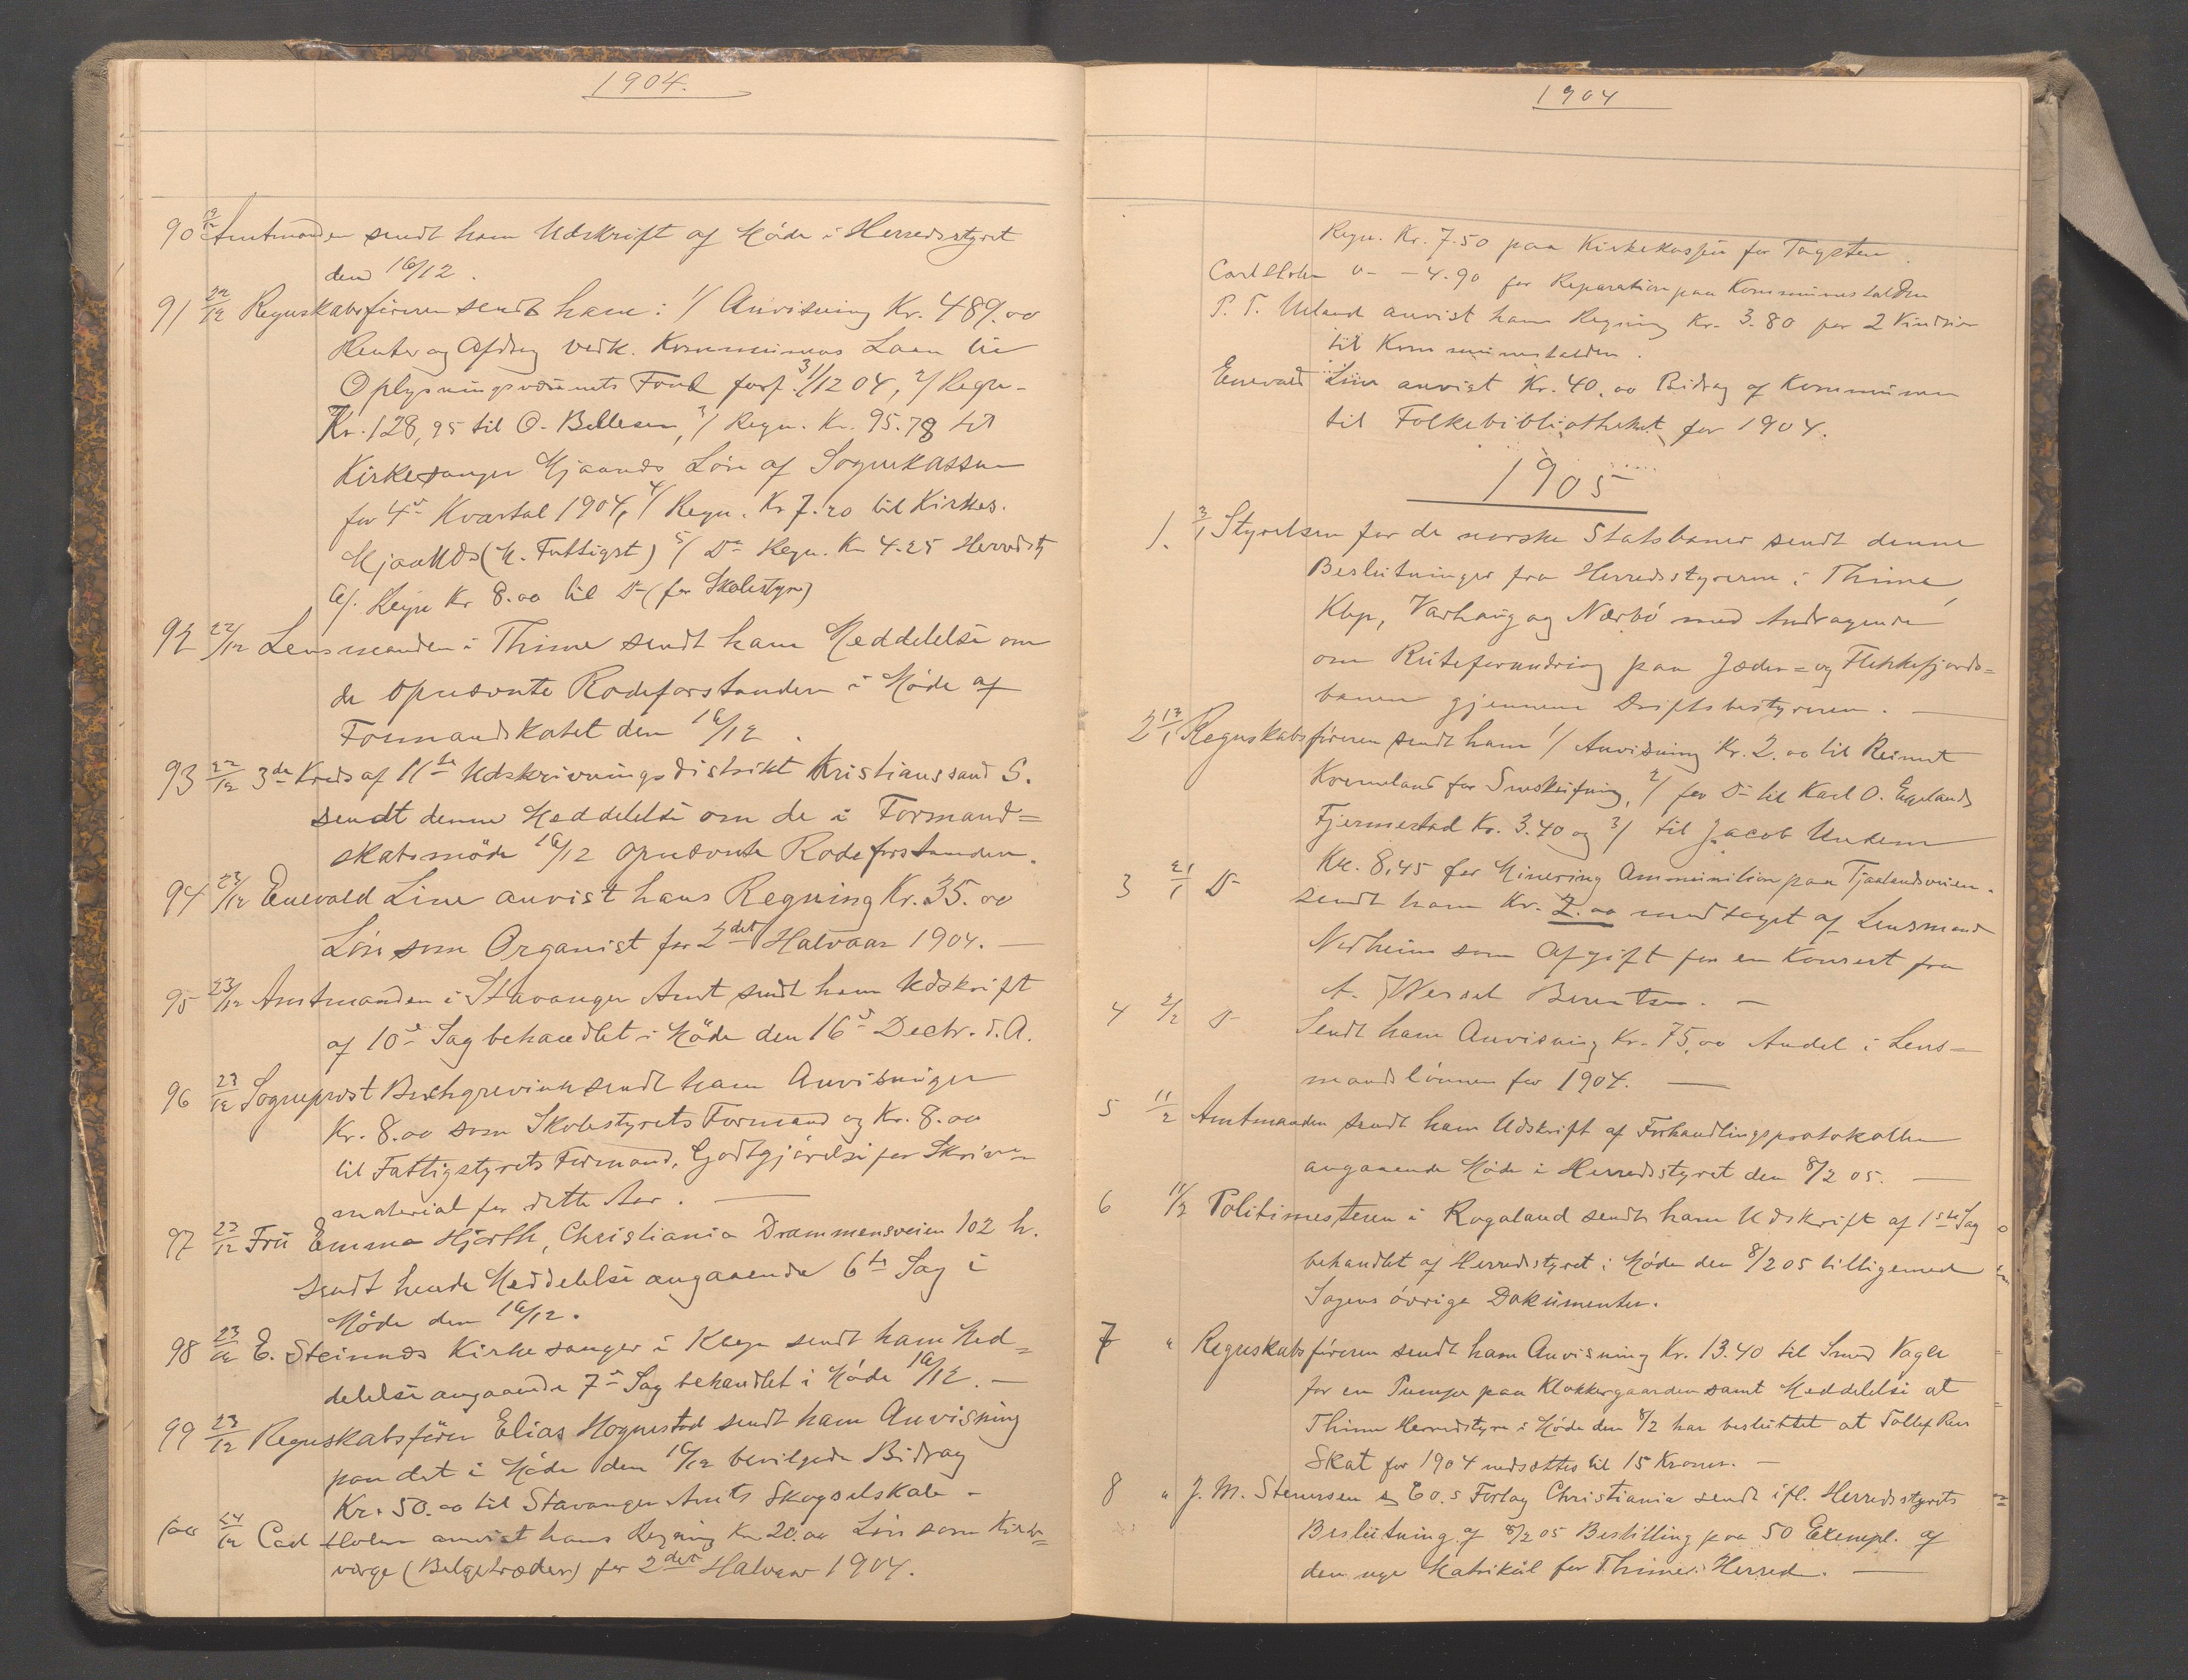 1904.
90 19/12 Amtmanden sendt ham Udskrift af Møde i Herredsstyret
den 16/12.
91 22/12 Regnskabsføreren sendt ham: 1/ Anvisning Kr. 489.00
Renter og Afdrag vedk. Kommunens Laan til
Oplysningsvæsenets Fond forf. 31/12 04, 2/ Regn-
Kr. 128,95 til O. Bellesen, 3/ Regn. Kr. 95.78 til
Kirkesanger Mjaanes Løn af Sognekassen
for 4de Kvartal 1904, 4/ Regn. Kr 7.20 til Kirkes.
Mjaanes (M. Fattigst) 5/ Do Regn. Kr 4.25 Herredsty
6/. Regn Kr 8.00 til Do (for Skolestyre)
92 22/12 Lensmanden i Thime sendt ham Meddelelse om
de opnævnte Rodeforstandere i Møde af
Formandskabet den 16/12.
93 22/12 3de Kreds af 11te Udskrivningsdistrikt Kristianssand S.
sendt denne Meddelelse om de i Formand=
skabsmøde 16/12 opnævnte Rodeforstandere.
94 23/12 Enevald Line anvist hans Regning Kr. 35.00
Løn som Organist for 2det Halvaar 1904. —
95 23/12 Amtmanden i Stavanger Amt sendt ham Udskrift
af 10de Sag behandlet i Møde den 16de Decbr. d.A.
96 23/12 Sogneprest Buchgrevink sendt ham Anvisninger
Kr. 8.00 som Skolestyrets Formand og Kr. 8.00
til Fattigstyrets Formand, Godtgjørelse for Skrive-
material for dette Aar. —
97 23/12 Fru Emma Hjorth, Christiania Drammensveien 102 h.
sendt hende Meddelelse angaaende 6te Sag i
Møde den 16/12.
98 23/12 E. Steinnes Kirkesanger i Klep sendt ham Med=
delelse angaaende 7de Sag behandlet i Møde 16/12. —
99 23/12 Regnskabsfører Elias Hognestad sendt ham Anvisning
paa det i Møde den 16/12 bevilgede Bidrag
Kr. 50.00 til Stavanger Amts Skogselskab -
100 24/12 Carl Holen anvist hans Regning Kr 20.00 Løn som Kirke=
værge (Belgetræder) for 2det Halvaar 1904.
1904
Regn. Kr. 7.50 paa Kirkekassen for Tagsten.
Carl Holen Do - 4.90 for Reparation paa Kommunelokalden
P. T. Ueland anvist hans Regning Kr. 3.80 for 2
til
Enevald Line anvist Kr. 40.00 Bidrag af Kommunen
til Folkebibliotheket for 1904.
1905
1. 3/1 Styrelsen for de norske Statsbaner sendt denne
Beslutninger fra Herredsstyrerne i Thime,
Klep, Varhaug og Nærbø med Andragende
om Ruteforandring paa Jæder= og Flekkefjords=
banen gjennem Driftsbestyreren. —
2 13/1 Regnskabsføreren sendt ham 1/ Anvisning Kr. 2.00 til Reinert
Kverneland for , 2/ for Do til Karl O. Egelands
Fjermestad Kr. 3.40 og 3/ til Jacob Undem
Kr. 8,45 for Minering Ammunition paa Tjaalandsveien.
3 21/1 Do sendt ham Kr. 2.00 modtaget af Lensmand
Nedheim som Afgift for en Konsert fra
A. Wessel Berentsen. —
4 2/2 Do Sendt ham Anvisning Kr. 75,00 Andel i Lens=
mandslønnen for 1904. —
5 11/2 Amtmanden sendt ham Udskrift af Forhandlingsprotokollen
angaaende Møde i Herredsstyret den 8/2 05. —
6 11/2 Politimesteren i Rogaland sendt ham Udskrift af 1ste Sag
behandlet af Herredsstyret i Møde den 8/2 05 tilligemed
Sagens øvrige Dokumenter.
7 " Regnskabsføreren sendt ham Anvisning Kr. 13.40 til Smed Vagle
for en Pumpe paa Klokkergaarden samt Meddelelse at
Thime Herredsstyre i Møde den 8/2 har besluttet at Tollef Rees
Skat for 1904 nedsættes til 15 Kroner. —
8 " J. M. Stenersen & Co.s Forlag Christiania sendt ifl. Herredsstyrets
Beslutning af 8/2 05 Bestilling paa 50 Exempl. af
den nye Matrikul for Thime Herred. —